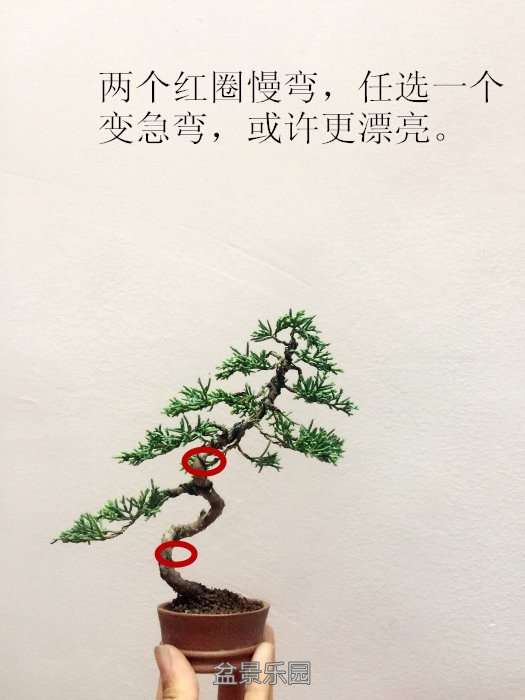 两个红圈慢弯，任选一个
变急弯，或许更漂亮。
盆景乐园